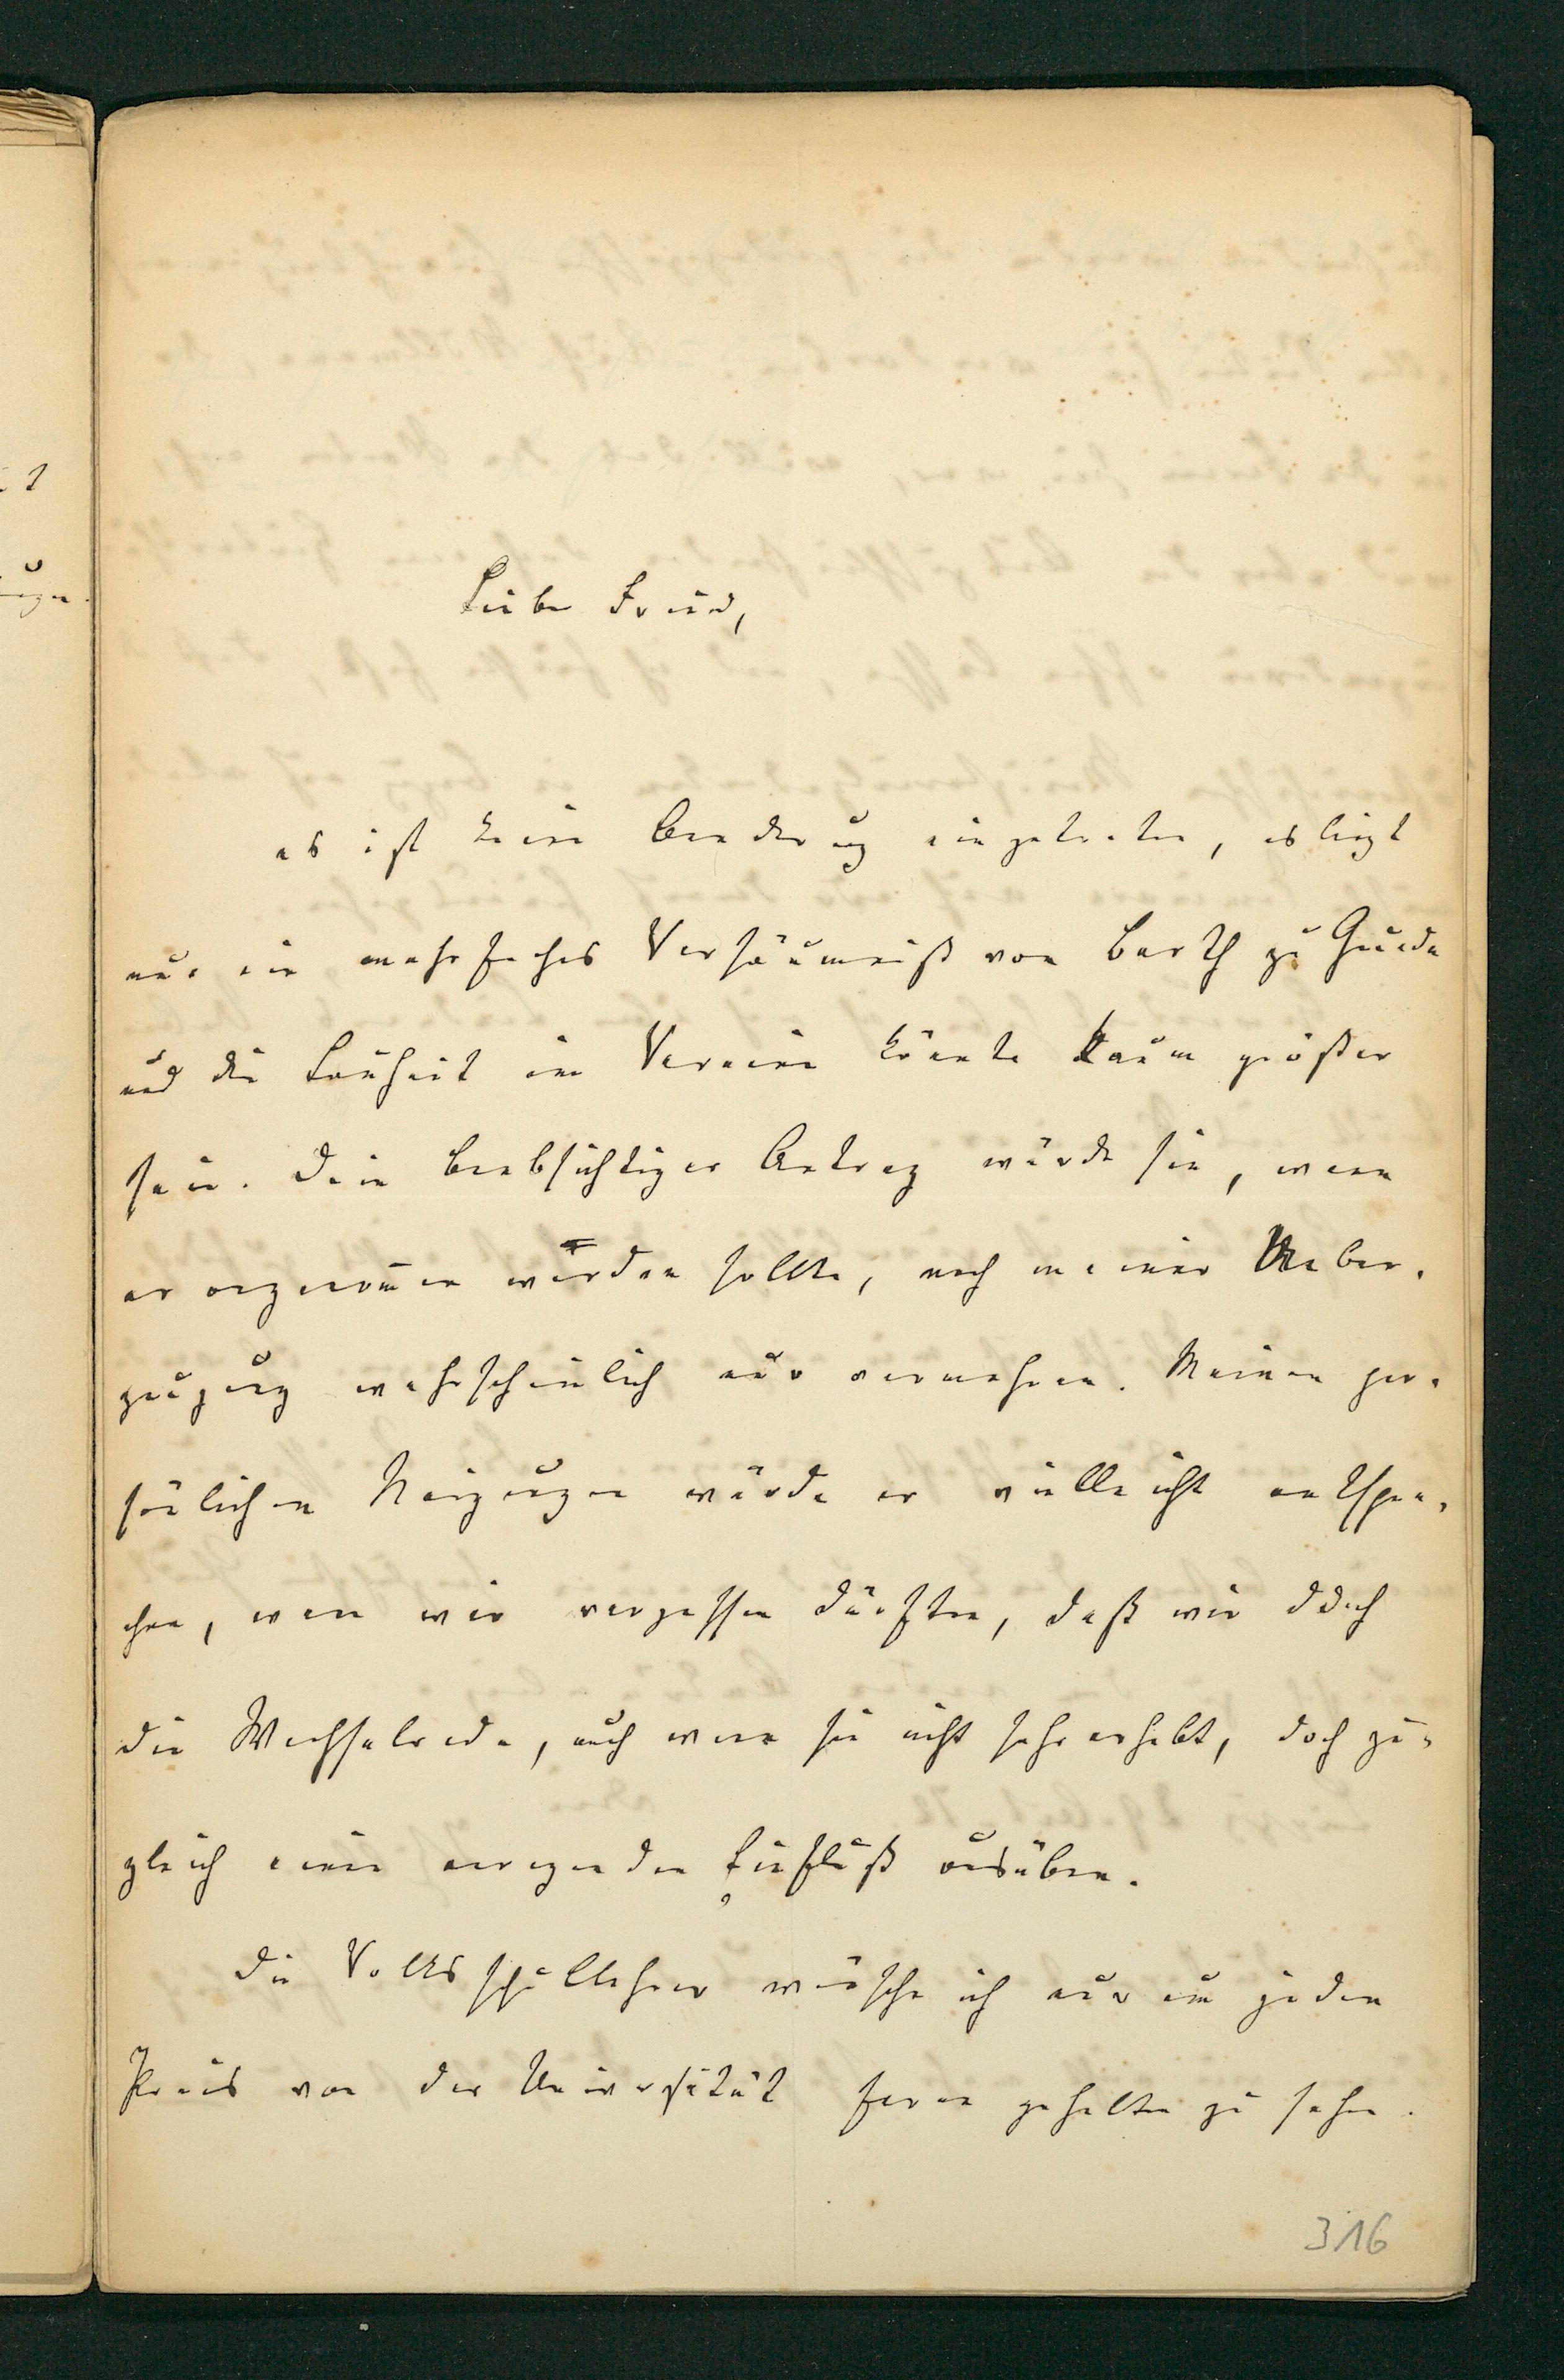 Lieber Freund,
es ist keine Aenderung eingetreten, es liegt
nur ein mehrfaches Versäumniß von Barth zu Grunde
und die Lauheit im Vereine könnte kaum größer
sein. Dein beabsichtigter Antrag würde sie, wenn
er angenommen werden sollte, nach meiner Ueber-
zeugung wahrscheinlich nur vermehren. Meinen per-
sönlichen Neigungen würde er vielleicht entspre-
chen, wenn wir vergessen dürften, daß wir durch
die Wechselrede, auch wenn sie nicht sehr erhebt, doch zu-
gleich einen anregenden Einfluß ausüben.
Die Volksschullehrer wünsche ich nur um jeden
Preis von der Universität ferne gehalten zu sehen.
316